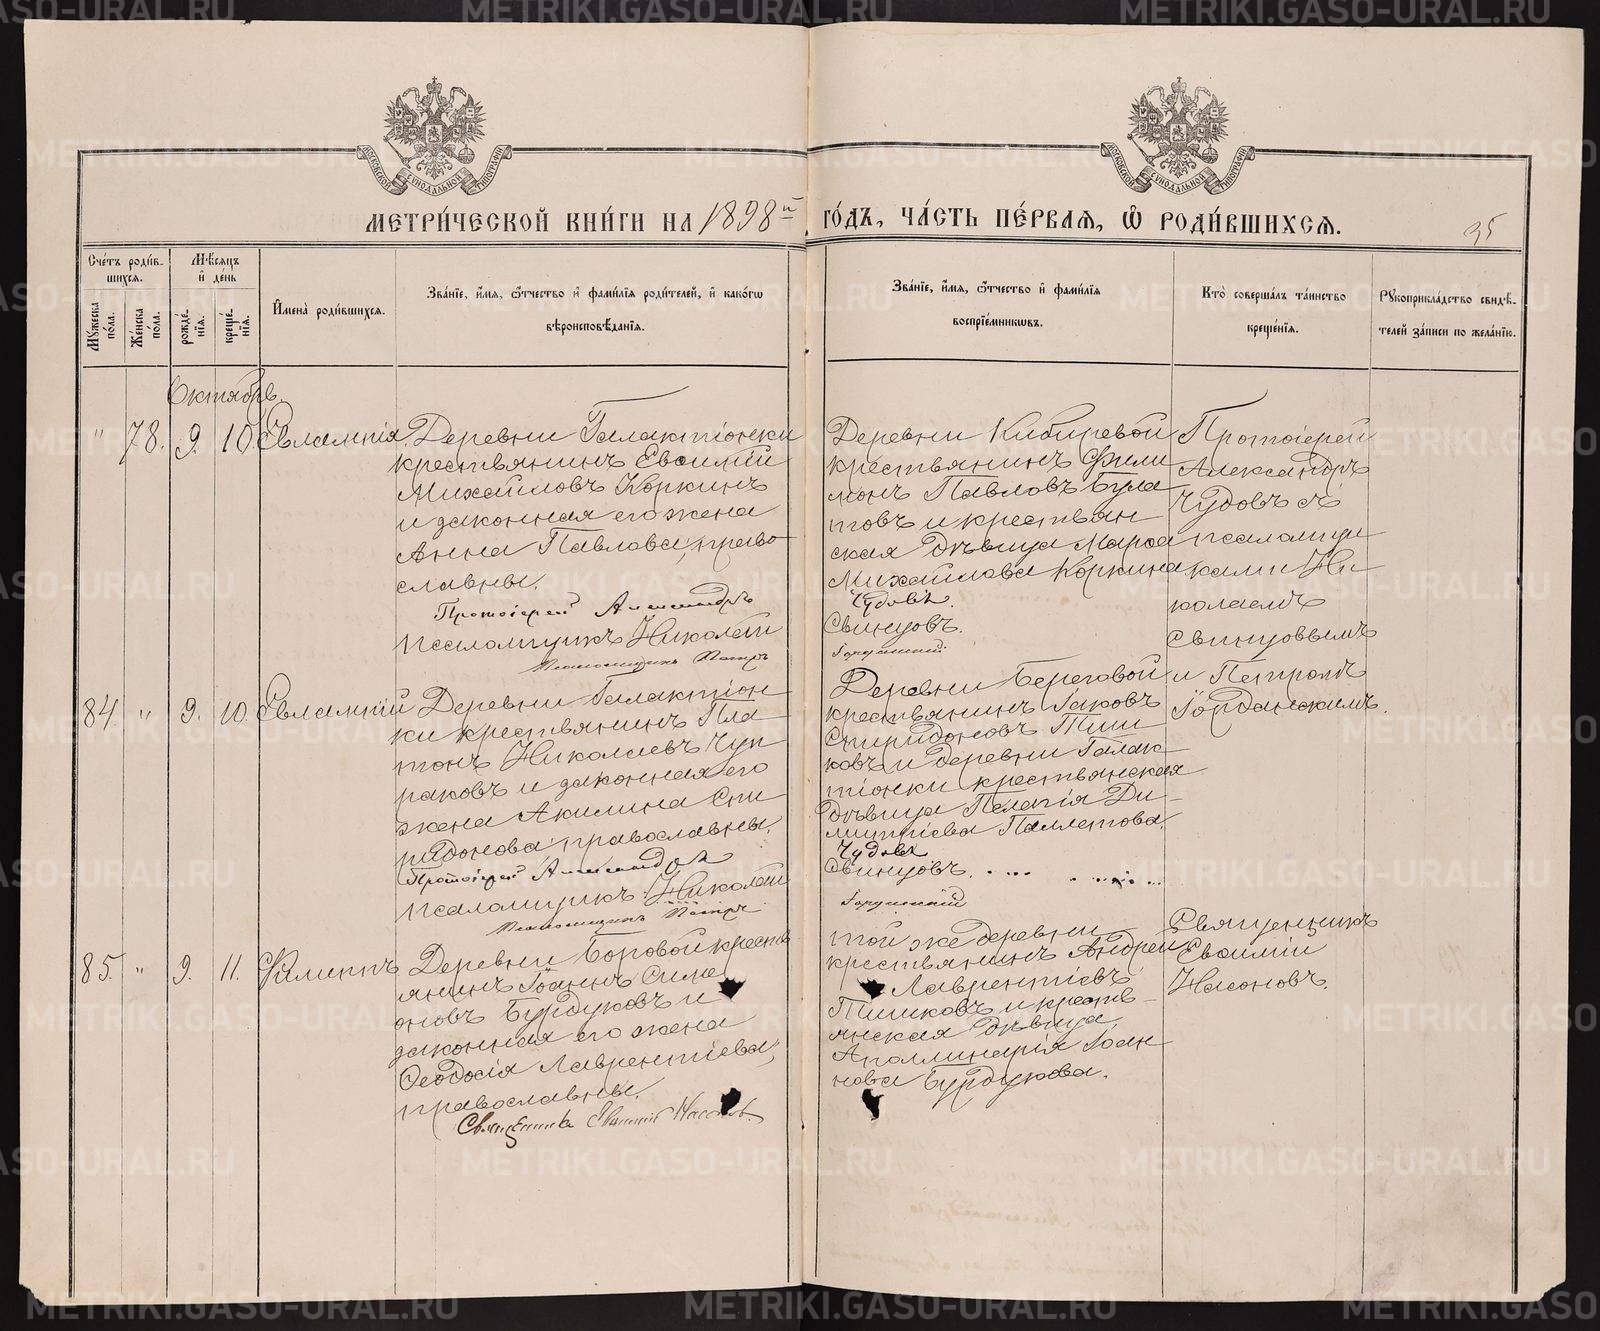 МЕТРИ́ЧЕСКОЙ КНИ́ГИ НА 1898й ГО́ДЪ, ЧА́СТЬ ПЕ́РВАЯ, Ѿ РОДИ́ВШИХСЯ.
95
Сче́тъ роди́в-
шихся.
Мꙋ́жеска по́ла.
Же́нска по́ла.
Мѣ́сяцъ
и҆ де́нь
рожде́-
нїя.
креще́-
нїя.
И҆мена̀ роди́вшихся.
Зва́нїе, и҆́мя, ѻ҆́тчество и҆ фами́лїя роди́телей, и҆ како́гѡ
вѣроисповѣ́данїя.
Зва́нїе, и҆́мя, ѻ҆́тчество и҆ фами́лїя
воспрїе́мникѡвъ.
Кто̀ соверша́лъ та́инство
креще́нїя.
Рꙋкоприкла́дство свидѣ́-
телей за́писи по жела́нїю.
Октябрь.
" 78. 9. 10. Евлампія.
Деревни Галактіонки
крестьянинъ Евѳимій
Михаиловъ Коркинъ
и законная его жена
Анна Павлова, право
славны.
Протоіерей Александръ
Псаломщикъ Николай
Псаломщикъ Петръ
Деревни Кибиревой
крестьянинъ Фили
монъ Павловъ Була
товъ и крестьян
ская дѣвица Марѳа
Михаилова Коркина
Чудовъ.
Свинцовъ.
Горданский
Протоіерей
Александръ
Чудовъ съ
псаломщи
ками Ни
колаемъ
Свинцовымъ
и Петромъ
Іорданскимъ.
84 " 9. 10. Евлампій
Деревни Галактіон
ки крестьянинъ Пла
тонъ Николаевъ Чуп
раковъ и законная его
жена Акилина Спи
ридонова, православны.
Протоіерей Александръ
Псаломщикъ Николай
Псаломщикъ Петръ
Деревни Береговой
крестьянинъ Іаковъ
Спиридоновъ Тиш
ковъ и деревни Галак
тіонки крестьянская
дѣвица Пелагія Ди-
митріева
Чудовъ
Свинцовъ.
85. " 9. 11. Филиппъ
Деревни Боровой крестъ
янинъ Іоаннъ Симе
оновъ Бурдуковъ и
законная его жена
Ѳеодосія Лаврентіева,
православны.
Священникъ Евѳимій Насоновъ
той же деревни
крестьянинъ Андрей
Лаврентіевъ
Тишковъ и крестъ-
янская дѣвица
Аполлинарія Іоан
нова Бурдукова.
Священникъ
Евѳимій
Насоновъ.